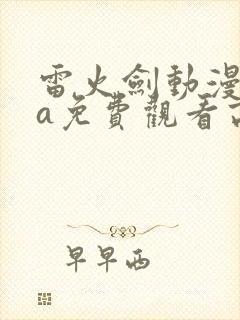 雷火劍動漫
a免費觀看高
早早西